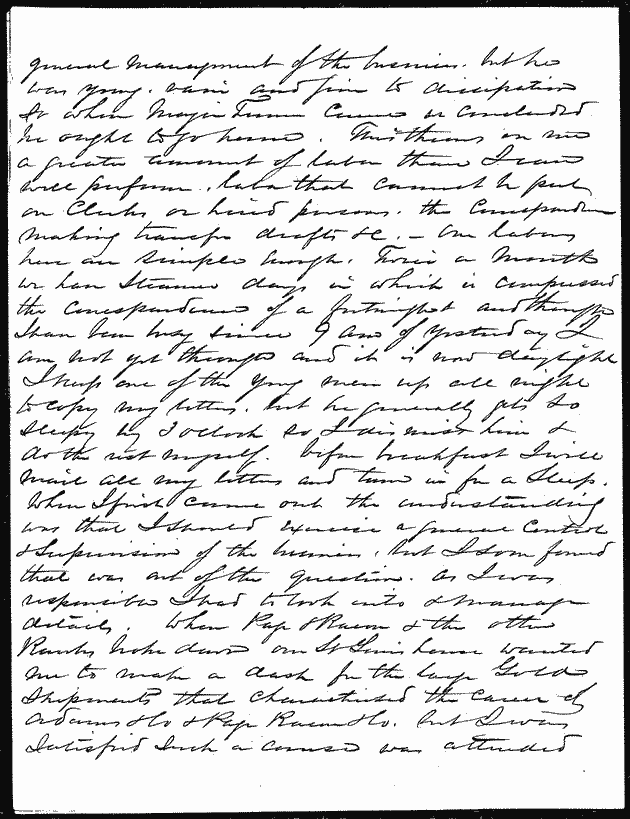 general management of the business. but he
was young. vain and given to dissipation
So when Major Turner came we concluded
he ought to go home. This throws on me
a greater amount of labor than I can
well perform, labor that cannot be put
on Clerks or hired persons. the Correspondence
making transfer drafts &c. – Our labors
here are simple enough. Twice a Month
we have Steamer days in which is compressed
the correspondence of a fortnight and though
I have been busy since 9 am of yesterday I
am not yet through and it is now daylight
I keep one of the young men up all night
to copy my letters. but he generally gets so
sleepy by 3 oclock so I dismiss him &
do the rest myself. before breakfast I will
mail all my letters and turn in for a sleep.
When I first came out the understanding
was that I should exercise a general Control
& Supervision of the business. but I soon found
that was out of the question. as I was
responsible I had to look into & manage
details. When Page & Bacon & the other
Banks broke down our St Louis house wanted
me to make a dash for the large Gold
Shipments that characterised the career of
Adams & Co & Page Bacon & Co. but I was
Satisfied Such a course was attended